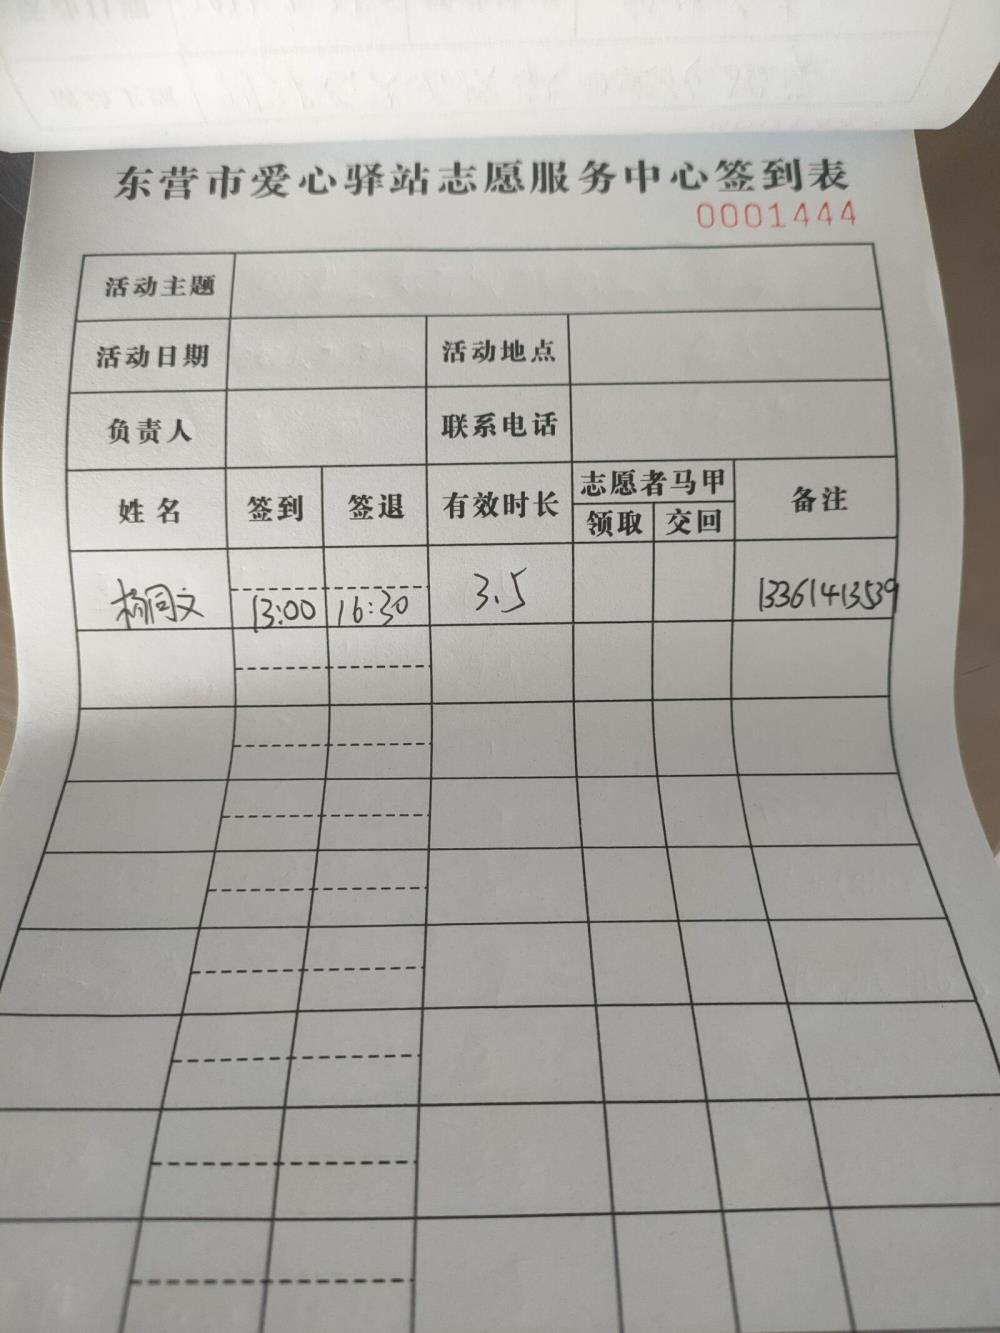 东营市爱心驿站志愿服务中心签到表
0001444
活动主题
活动日期 活动地点
负责人 联系电话
姓名 签到 签退 有效时长 志愿者马甲 备注
领取 交回
杨同文 13:00 16:30 3.5 13361413539